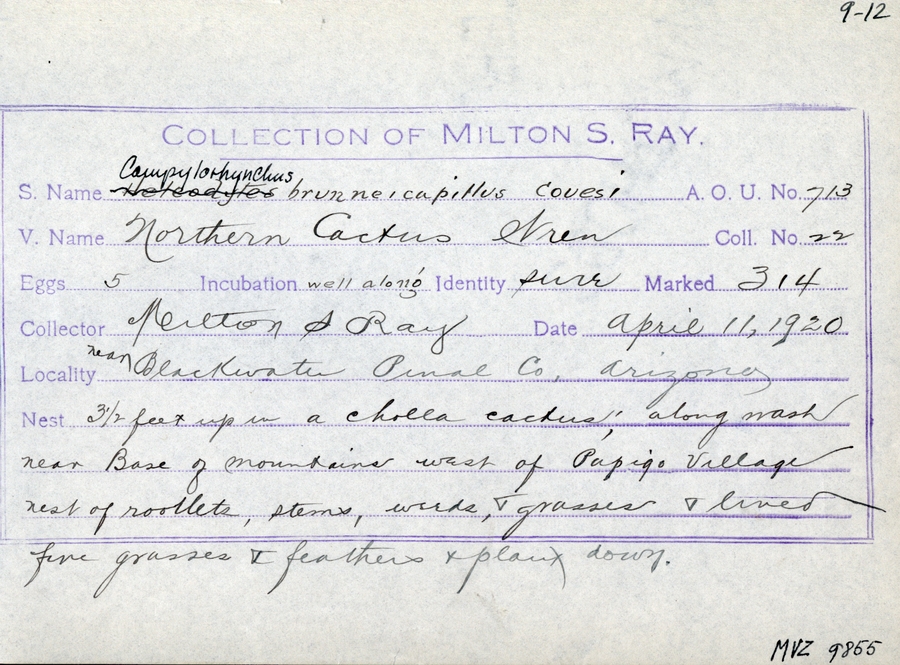 9-12
COLLECTION OF MILTON S. RAY.
Campylorhynchus
S. Name Heleodytes brunneicapillus couesi A. O. U. No. 713
V. Name Northern Cactus Wren Coll. No. 22
Eggs 5 Incubation well along Identity sure Marked 314
Collector Milton S Ray Date April 11, 1920
near
Locality Blackwater Pinal Co, Arizona
Nest 3 1/2 feet up in a cholla cactus, along wash
near Base of mountains west of Papigo Village
nest of rootlets, stems, weeds, & grasses & lined
fine grasses & feathers & plant down.
MVZ 9855